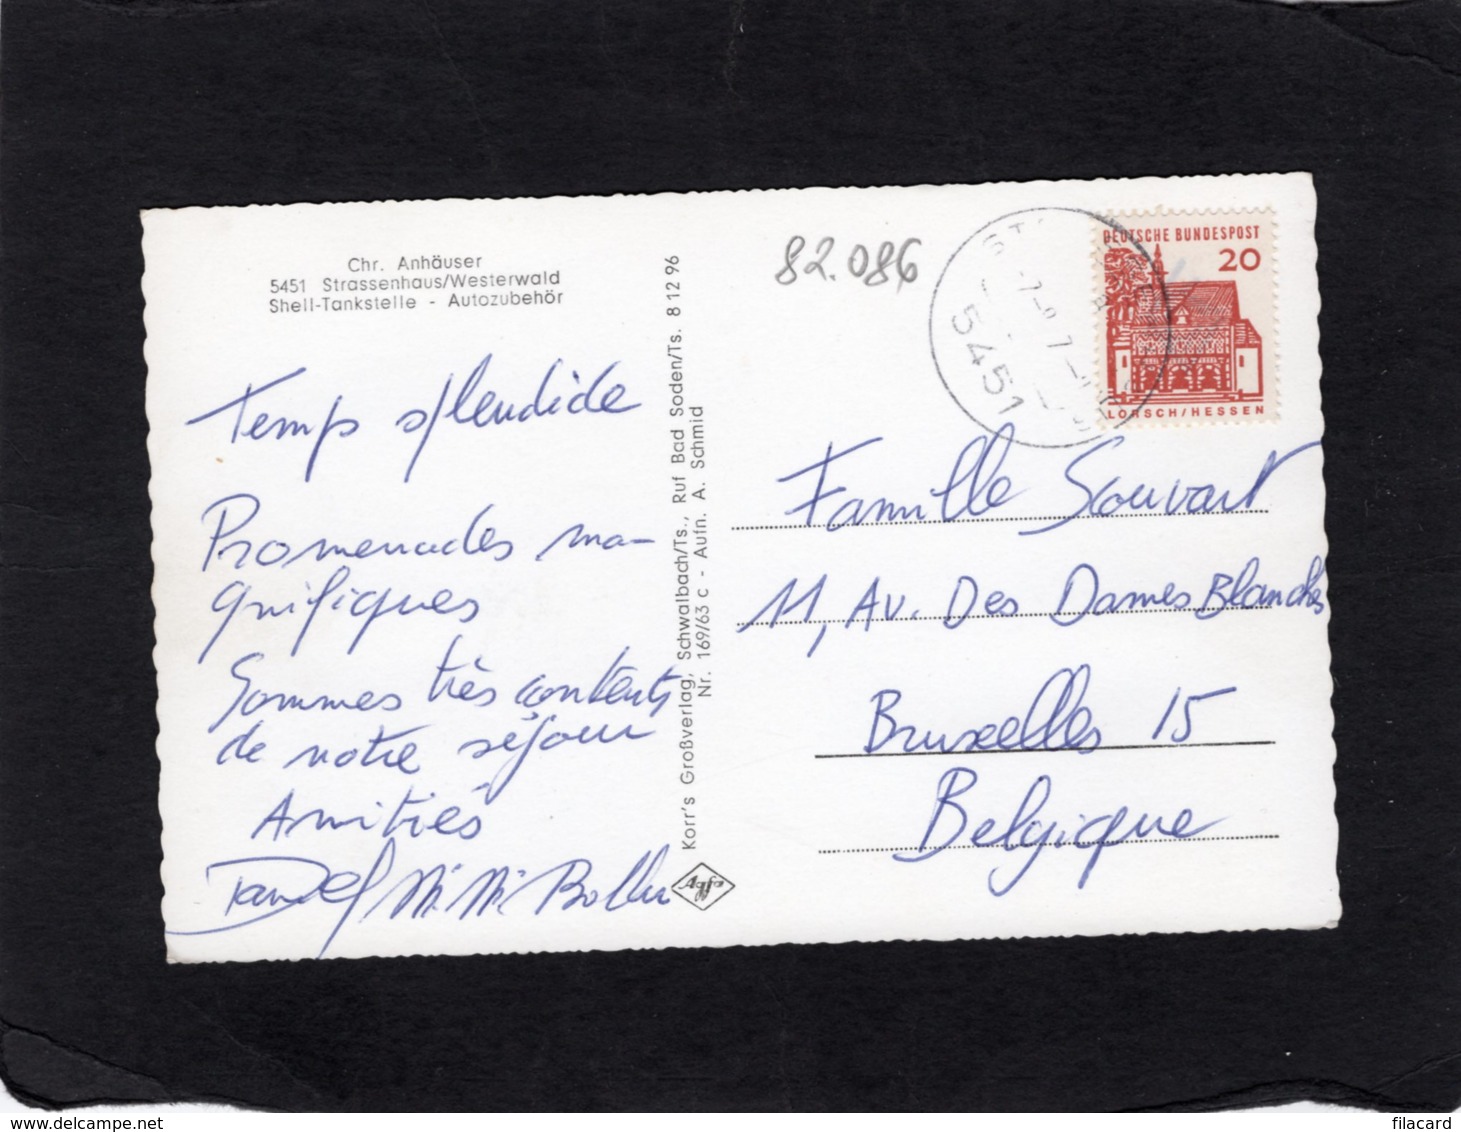 Chr. Anhäuser
5451 Strassenhaus/Westerwald
Shell-Tankstelle - Autozubehör
Temps splendide
Promenades ma-
gnifiques
Sommes très contents
de notre séjour
Amitiés
Korr's Großverlag, Schwalbach/Ts., Ruf Bad Soden/Ts. 8 12 96
Nr. 169/63 c - Aufn. A. Schmid
Agfa
82.086
5451
DEUTSCHE BUNDESPOST
20
LORSCH/HESSEN
Famille Souvart
11, Av. Des Dames Blanches
Bruxelles 15
Belgique
filacard